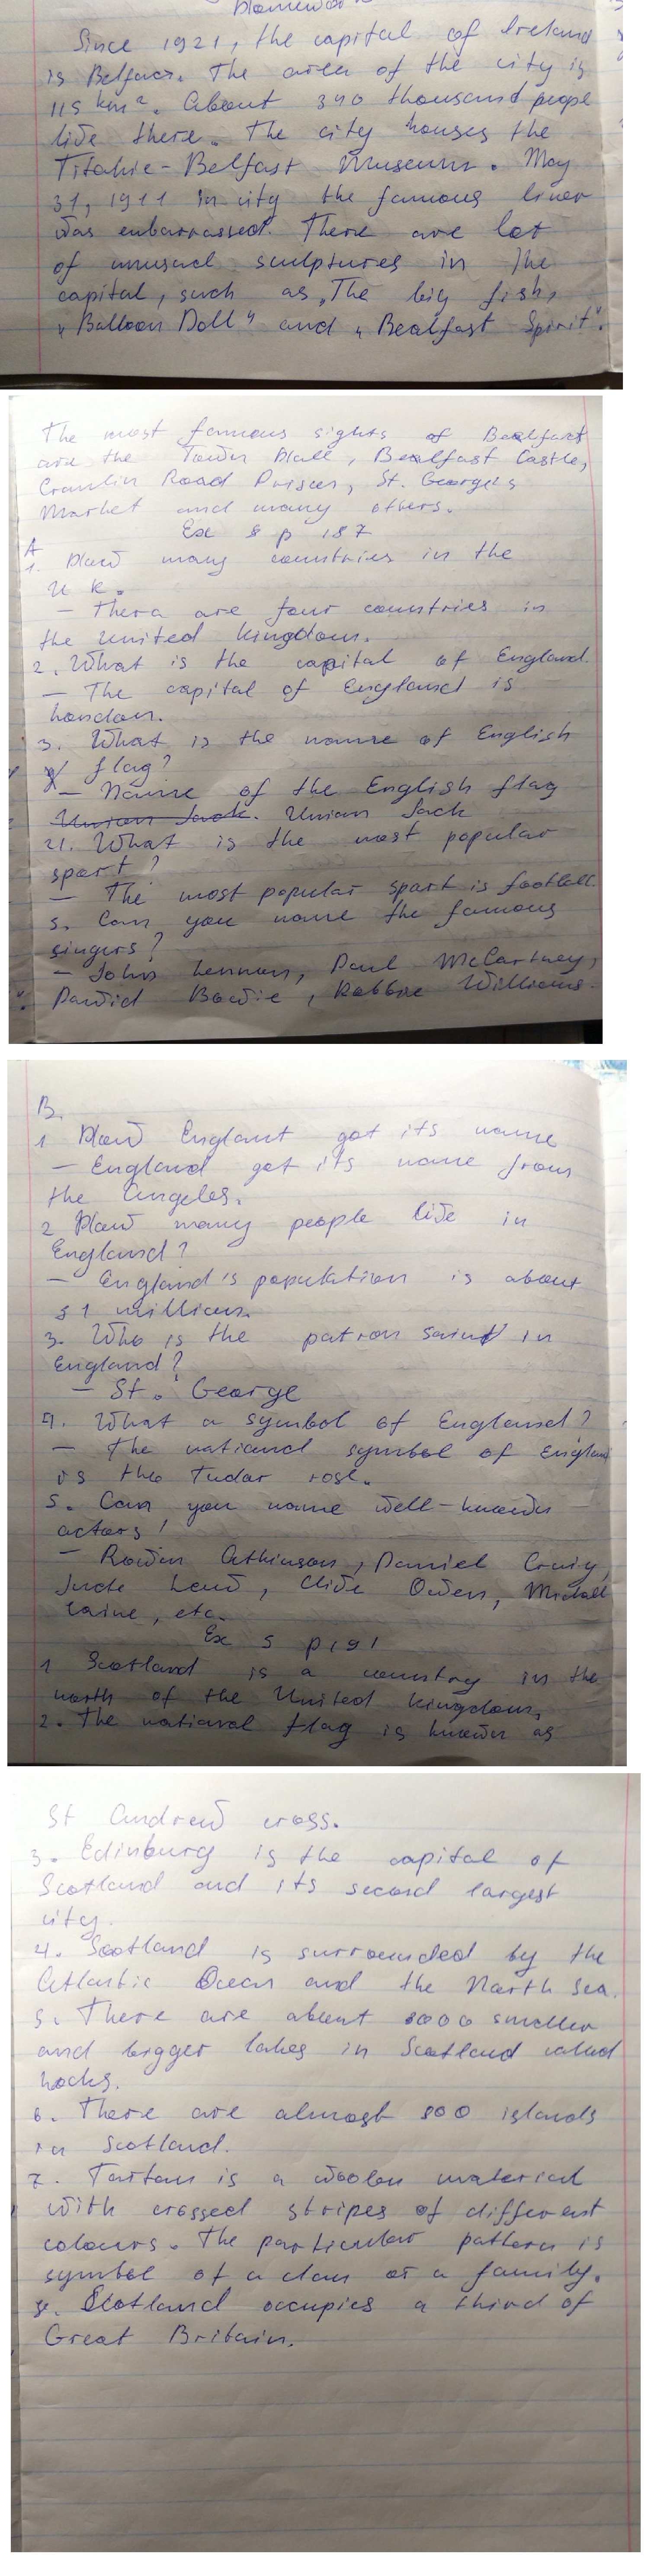 Homework
Since 1921, the capital of Ireland
is Belfast. The area of the city is
115 km². About 340 thousand peope
live there. The city houses the
Titanic-Belfast Museum. May
31, 1911 in city the famous liner
was enbarrassed. There are lot
of unusual sculptures in the
capital, such as „The big fish,
„Balloon Doll" and „Bealfast Spirit".
The most famous sights of Bealfast
are the Town Hall, Bealfast Castle,
Cramlin Road Prison, St. George's
Market and many others.
Ex 8 p 187
A
1. How many countries in the
U K.
- Thera are four countries in
the United Kingdom.
2. What is the capital of England.
- The capital of England is
London.
3. What is the name of English
flag?
- Name of the English flag
Union Jack. Union Jack
4. What is the most popular
sport?
- The most popular sport is football.
5. Can you name the famous
singers?
- John Lennon, Paul McCartney,
David Bowie, Robbie Williams.
B.
1 How England got its name
- England get its name from
the Angeles.
2 How many people live in
England?
- England's population is about
51 million.
3. Who is the patron saint in
England?
- St. George
4. What a symbol of England?
- The national symbol of England
is the Tudar rose.
5. Can you name well-known
actors!
- Rowan Atkinson, Daniel Craig,
Jude Law, Clive Owen,
Caine, etc.
Ex 5 p 191
1 Scotland is a country in the
north of the United Kingdom,
2. The national flag is known as
St Andrew cross.
3. Edinburg is the capital of
Scotland and its second largest
city.
4. Scotland is surrounded by the
Atlantic Ocean and the North Sea.
5. There are about 3000 smaller
and bigger lakes in Scotland called
Locks.
6. There are almost 800 islands
in Scotland.
7. Tartan is a woolen material
with crossed stripes of different
colours. The particular pattern is
symbol of a clan or a family.
8. Scotland occupies a third of
Great Britain.